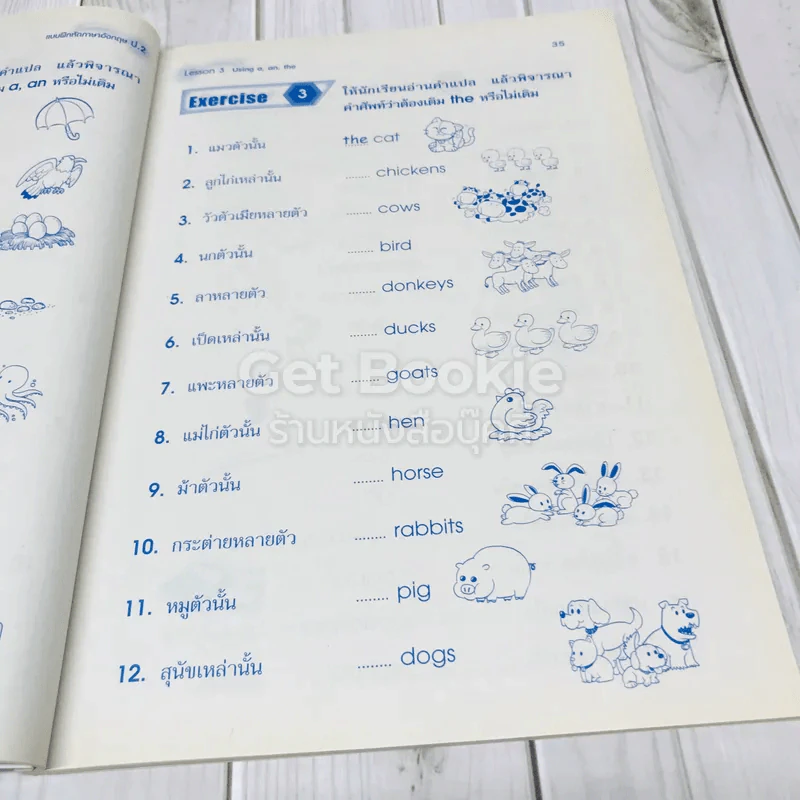 แบบฝึกหัดภาษาอังกฤษ ป.2
คำแปล แล้วพิจารณา
a, an หรือไม่เติม
35
Lesson 3 Using a, an, the
Exercise 3
ให้นักเรียนอ่านคำแปล แล้วพิจารณา
คำศัพท์ว่าต้องเติม the หรือไม่เติม
1. แมวตัวนั้น the cat
2. ลูกไก่เหล่านั้น ........ chickens
3. วัวตัวเมียหลายตัว ........ cows
4. นกตัวนั้น ........ bird
5. ลาหลายตัว ........ donkeys
6. เป็ดเหล่านั้น ........ ducks
7. แพะหลายตัว ........ goats
8. แม่ไก่ตัวนั้น ........ hen
9. ม้าตัวนั้น ........ horse
10. กระต่ายหลายตัว ........ rabbits
11. หมูตัวนั้น ........ pig
12. สุนัขเหล่านั้น ........ dogs
Get Bookie
ร้านหนังสือบุ๊ค